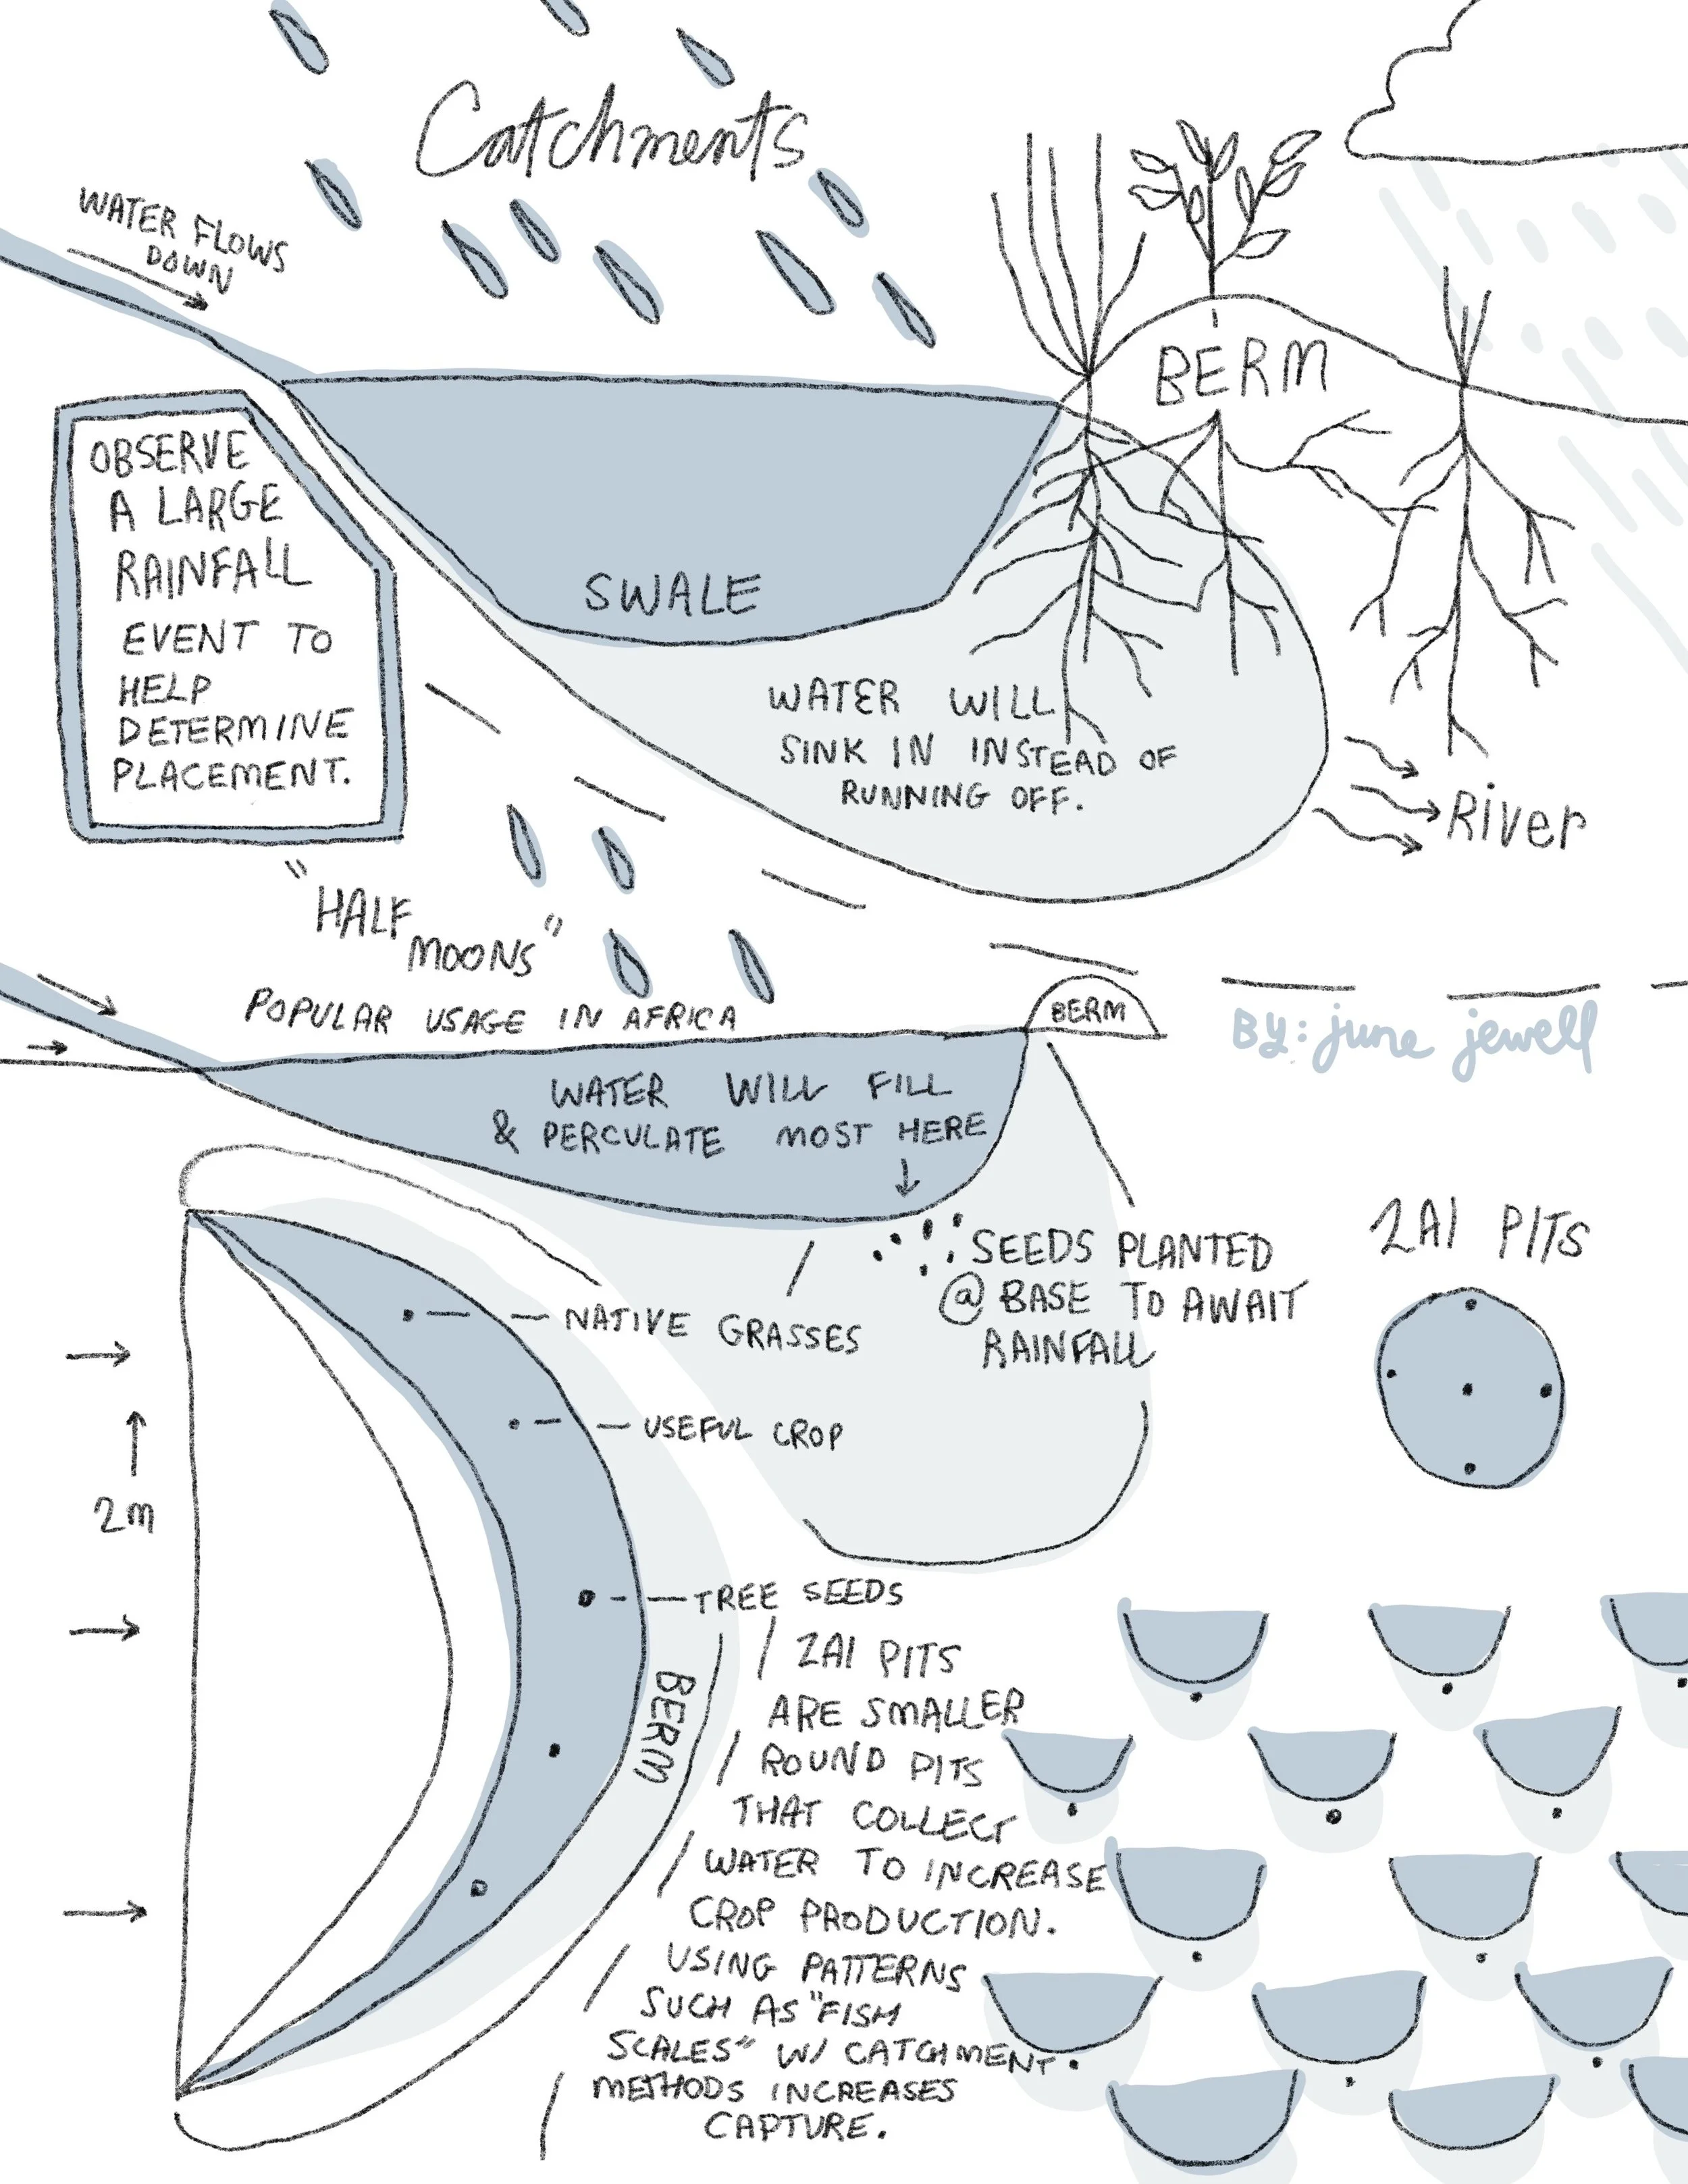 Catchments
WATER FLOWS
DOWN
BERM
OBSERVE
A LARGE
RAINFALL
EVENT TO
HELP
DETERMINE
PLACEMENT.
SWALE
WATER WILL
SINK IN INSTEAD OF
RUNNING OFF.
River
"HALF
MOONS"
POPULAR USAGE IN AFRICA
BERM
BY: june jewell
WATER WILL FILL
& PERCULATE MOST HERE
SEEDS PLANTED
@ BASE TO AWAIT
RAINFALL
ZAI PITS
NATIVE GRASSES
USEFUL CROP
2m
TREE SEEDS
BERM
ZAI PITS
ARE SMALLER
ROUND PITS
THAT COLLECT
WATER TO INCREASE
CROP PRODUCTION.
USING PATTERNS
SUCH AS "FISH
SCALES" W/ CATCHMENT
METHODS INCREASES
CAPTURE.